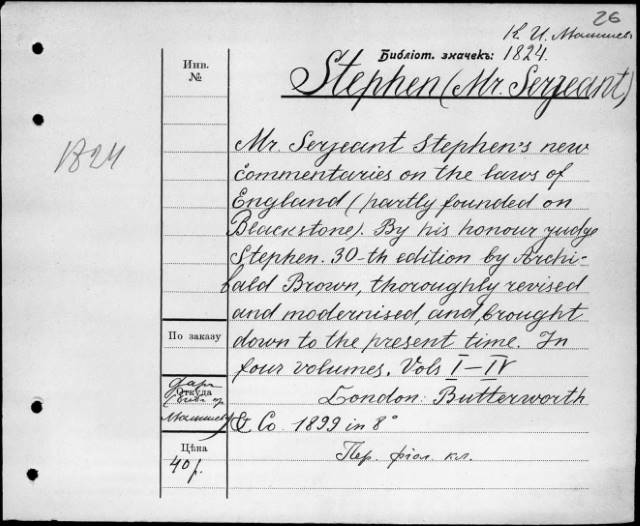 26
К. И.
Библіот. значекъ: 1824.
Инв.
№
Stephen (Mr. Serjeant)
1824
Mr. Serjeant Stephen's new
commentaries on the laws of
England (partly founded on
Blackstone). By his honour judge
Stephen. 30-th edition by Archi-
bald Brown, thoroughly revised
and modernised, and brought
down to the present time. In
four volumes. Vols I–IV
London: Butterworth
& Co. 1899 in 8°
Пер. фіол. кл.
По заказу
Дар
Откуда
Цѣна
40 р.